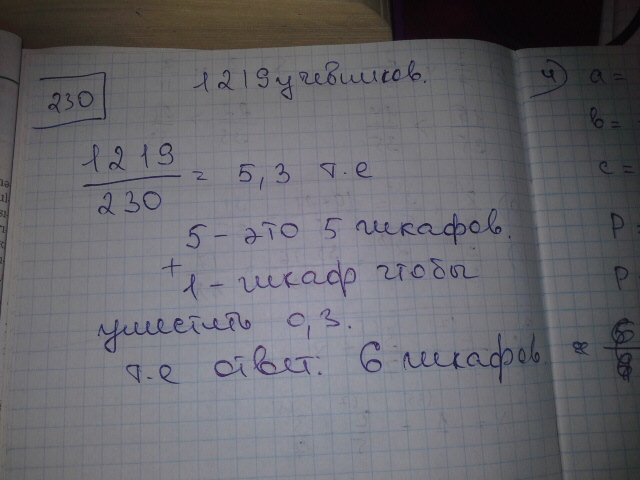 230
1219 учебников.
1219
230
= 5,3 т.е
5 - это 5 шкафов.
+
1 - шкаф чтобы
уместить 0,3.
т.е ответ: 6 шкафов
4) a =
b =
c =
P =
P